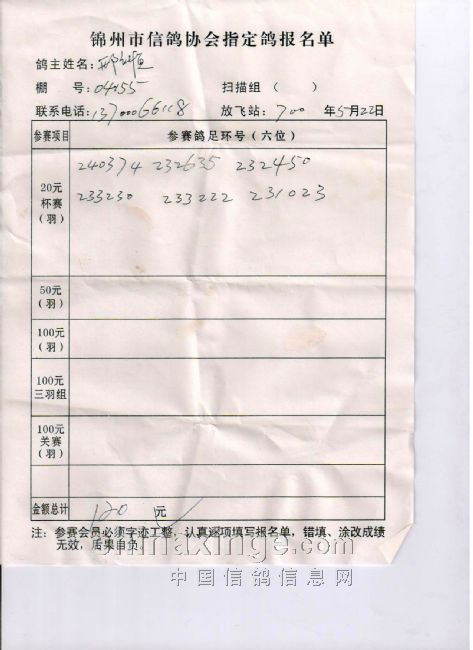 锦州市信鸽协会指定鸽报名单
鸽主姓名:
棚 号: 0455 扫描组 ( )
联系电话: 13700066118 放飞站: 700 年5月22日
参赛项目 参赛鸽足环号(六位)
20元 杯赛 (羽) 240374 232635 232450
233230 233222 231023
50元 (羽)
100元 (羽)
100元 三羽组
100元 关赛 (羽)
金额总计 120 元
注: 参赛会员必须字迹工整, 认真逐项填写报名单, 错填、涂改成绩
无效, 后果自负
chinaxinge.com
中国信鸽信息网